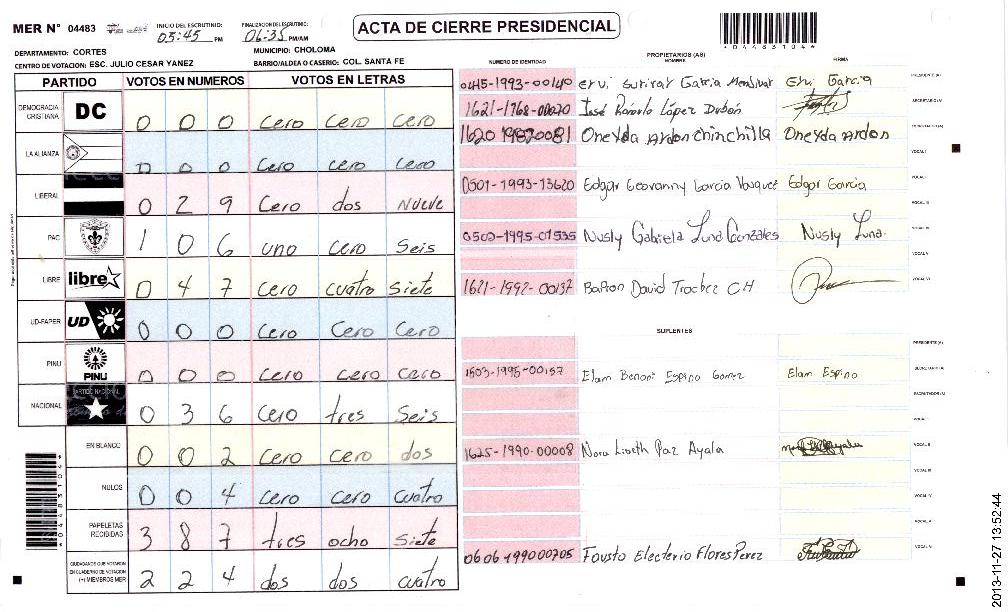 MER N° 04483
INICIO DEL ESCRUTINIO: 05:45 PM
FINALIZACION DEL ESCRUTINIO: 06:35 PM/AM
ACTA DE CIERRE PRESIDENCIAL
0448310 4
DEPARTAMENTO: CORTES
MUNICIPIO: CHOLOMA
CENTRO DE VOTACION: ESC. JULIO CESAR YANEZ
BARRIO/ALDEA O CASERIO: COL. SANTA FE
PARTIDO VOTOS EN NUMEROS VOTOS EN LETRAS
DEMOCRACIA CRISTIANA DC 0 0 0 cero cero cero
LA ALIANZA 0 0 0 Cero Cero Cero
LIBERAL 0 2 9 Cero dos Nueve
PAC 1 0 6 uno cero Seis
LIBRE libre 0 4 7 Cero cuatro Siete
UD-FAPER UD 0 0 0 Cero Cero Cero
PINU PINU 0 0 0 Cero Cero Cero
NACIONAL PARTIDO NACIONAL 0 3 6 Cero tres Seis
EN BLANCO 0 0 2 Cero Cero dos
NULOS 0 0 4 Cero Cero Cuatro
PAPELETAS RECIBIDAS 3 8 7 tres ocho Siete
CIUDADANOS QUE VOTARON EN CUADERNO DE VOTACION (+) MIEMBROS MER 2 2 4 dos dos cuatro
PROPIETARIOS (AS)
NUMERO DE IDENTIDAD NOMBRE FIRMA
Garcia Mendivar Garcia PRESIDENTE (A)
José López Dubón SECRETARIO (A)
Oneyda Ardon chinchilla Oneyda Ardon ESCRUTADOR (A)
VOCAL I
0501-1993-13620 Edgar Geovanny Garcia Vasquez Edgar Garcia
Nusly Gabriela Luna Gonzales Nusly Luna
VOCAL V
1621-1992-00137 David CH
SUPLENTES
PRESIDENTE (A)
1503-1995-00157 Elam Benoni Espino Gomez Elam Espino SECRETARIO (A)
ESCRUTADOR (A)
VOCAL I
1625-1990-00008 Nora Liseth Paz Ayala VOCAL II
VOCAL III
VOCAL IV
VOCAL V
0606199000705 Fausto Electerio Flores Perez
2013-11-27 13:52:44